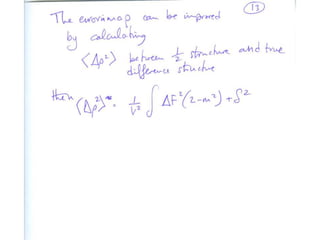 (13)
The error in map can be improved
by calculating
⟨Δρ²⟩ between ½ structure and true
difference structure
then ⟨Δρ²⟩ = 1/V² ∫ ΔF²(2-m²) + δ²